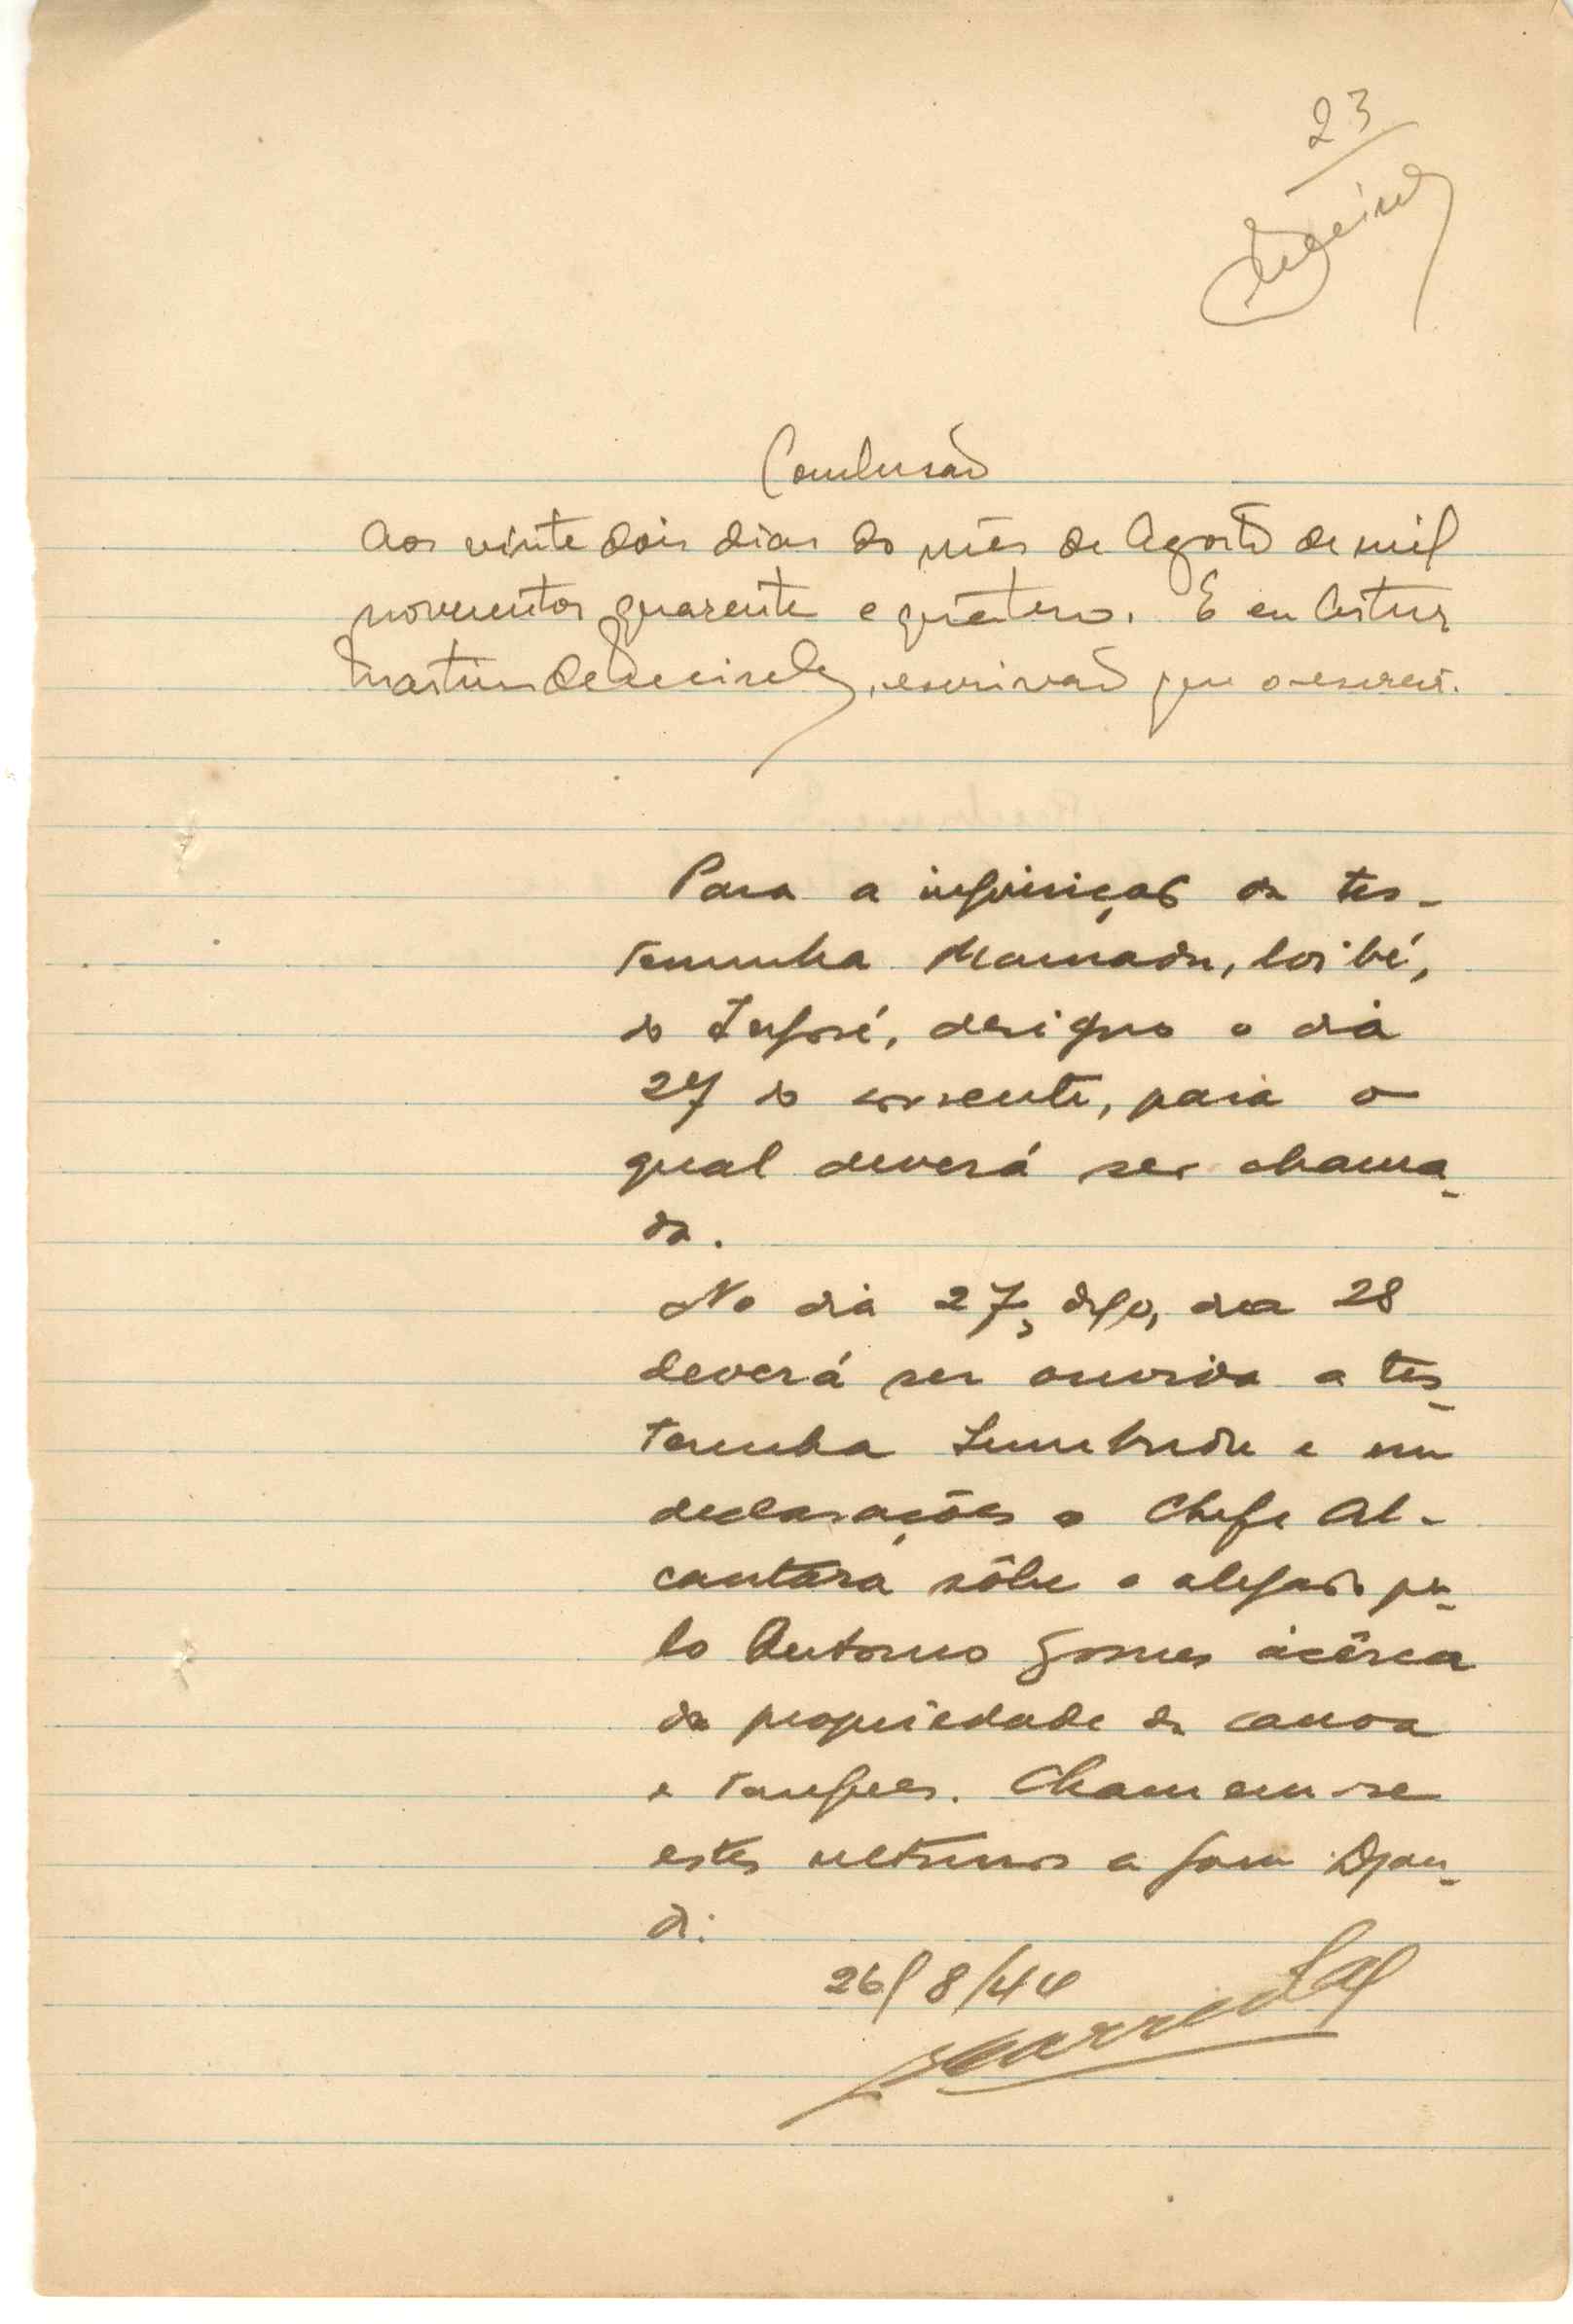 23
Conclusão
Aos vinte dois dias do mês de Agosto de mil
novecentos quarenta e quatro. E eu Artur
Martins de Meireles, escrivão que o escrevi.
Para a inquirição da tes-
temunha Mamadu, loibé,
do Ingoré, designo o dia
27 do corrente, para o
qual deverá ser chama-
da.
No dia 27, digo, dia 28
deverá ser ouvida a tes-
temunha e em
declarações o Chefe Al-
cantara sôbre o alegado pe-
lo Antonio Gomes àcêrca
da propriedade da canoa
e tanques. Chamem-se
estes ultimos a
26/8/44